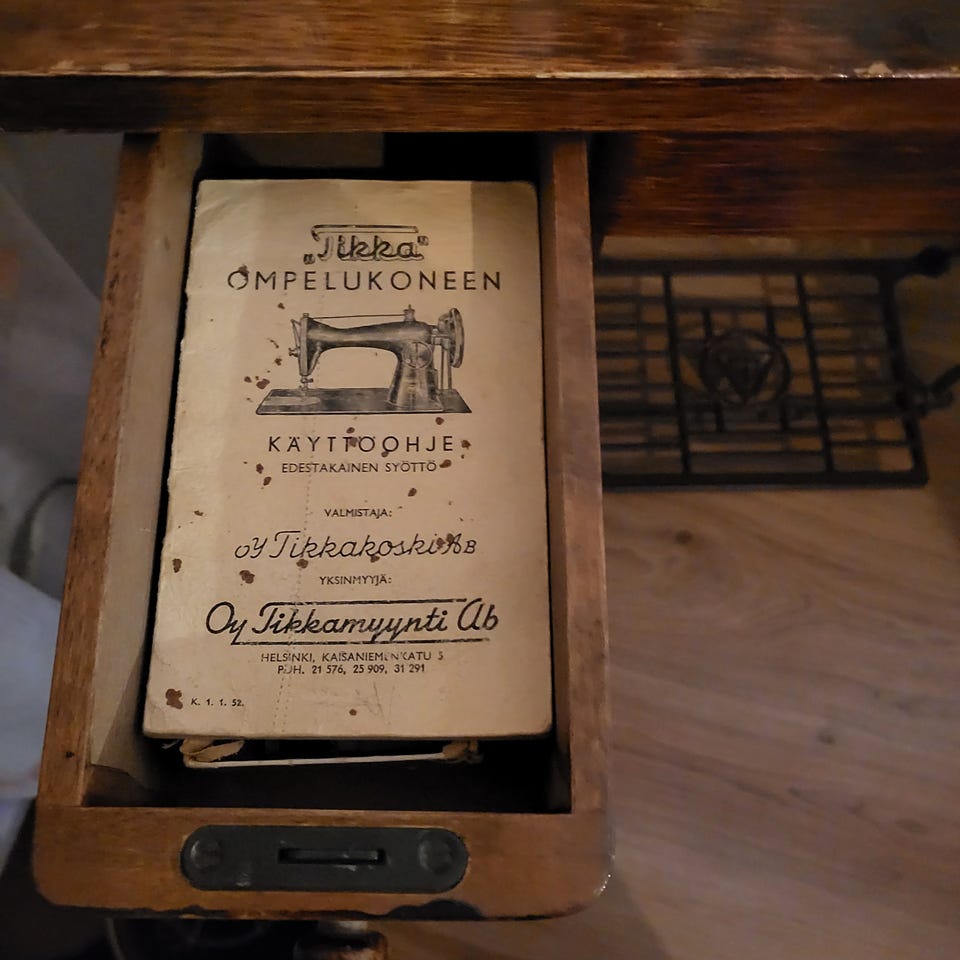 „Tikka"
OMPELUKONEEN
KÄYTTÖOHJE
EDESTAKAINEN SYÖTTÖ
VALMISTAJA:
OY Tikkakoski AB
YKSINMYYJÄ:
Oy Tikkamyynti Ab
HELSINKI, KAISANIEMENKATU 5
PUH. 21 576, 25 909, 31 291
K. 1. 1. 52.